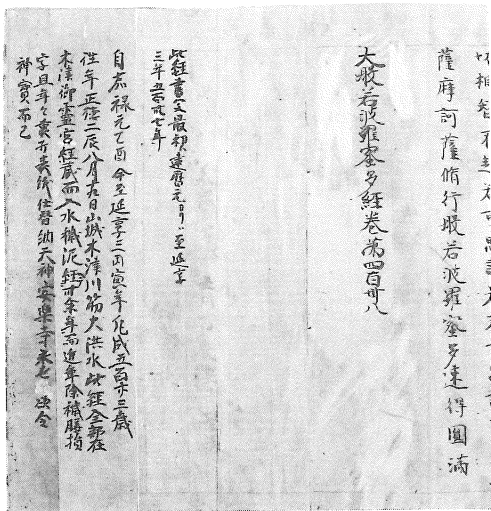 薩摩訶薩脩行般若波羅蜜多速得圓滿
大般若波羅蜜多經卷第四百卅八
此經書写最初建暦元ヨリ至延享
三年五百卅七年
自嘉禄元乙酉今至延享三丙寅年化成五百廿二歳
徃年正徳二辰八月九日山城木津川筋大洪水此經全部在
木津御靈宮經蔵而入水穢泥經卅余年而近年除穢損
字且年々表紙仕替納天神安樂寺
神寳而已